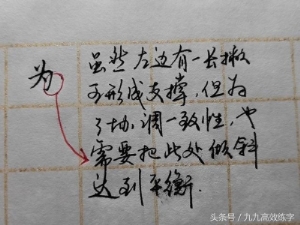 为
虽然左边有一长撇
于形成支撑,但为
了协调一致性,也
需要把此处倾斜
达到平衡.
头条号/九九高效练字